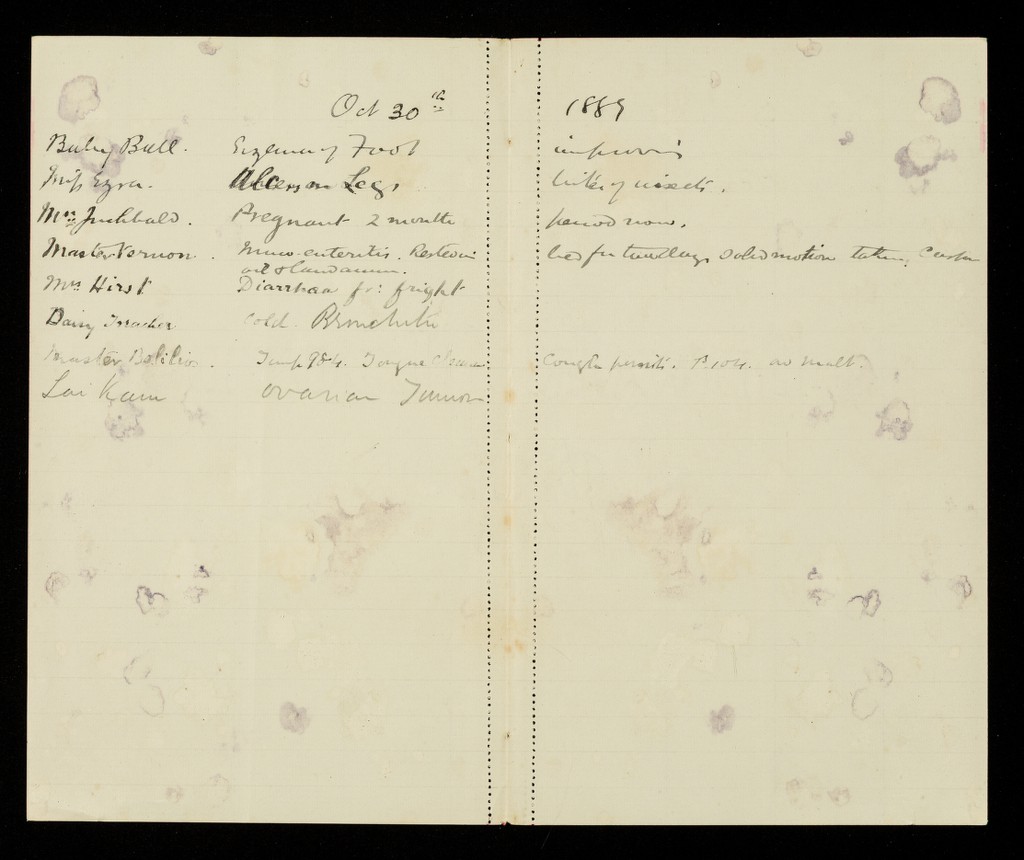 Oct 30th 1889
Baby Bull. Eczema of Foot improving
Miss Ezra. Ulcers on Legs bites of insects.
Mrs Inchbald. Pregnant 2 months period now.
Master Vernon. Muco-enteritis. bed for two days solid motion
oil & laudanum.
Mrs Hirst Diarrhoea fr: fright
Daisy cold. Bronchitis
Master Belilios. Temp 98.4. Tongue Clean Cough persists. P.104. no malt.
Lai Kam ovarian Tumor